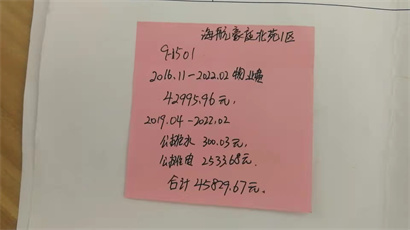 海航豪庭北苑1区
9-1501
2016.11-2022.02物业费
42995.96元.
2019.04-2022.02
公摊水 300.03元.
公摊电 2533.68元.
合计45829.67元.